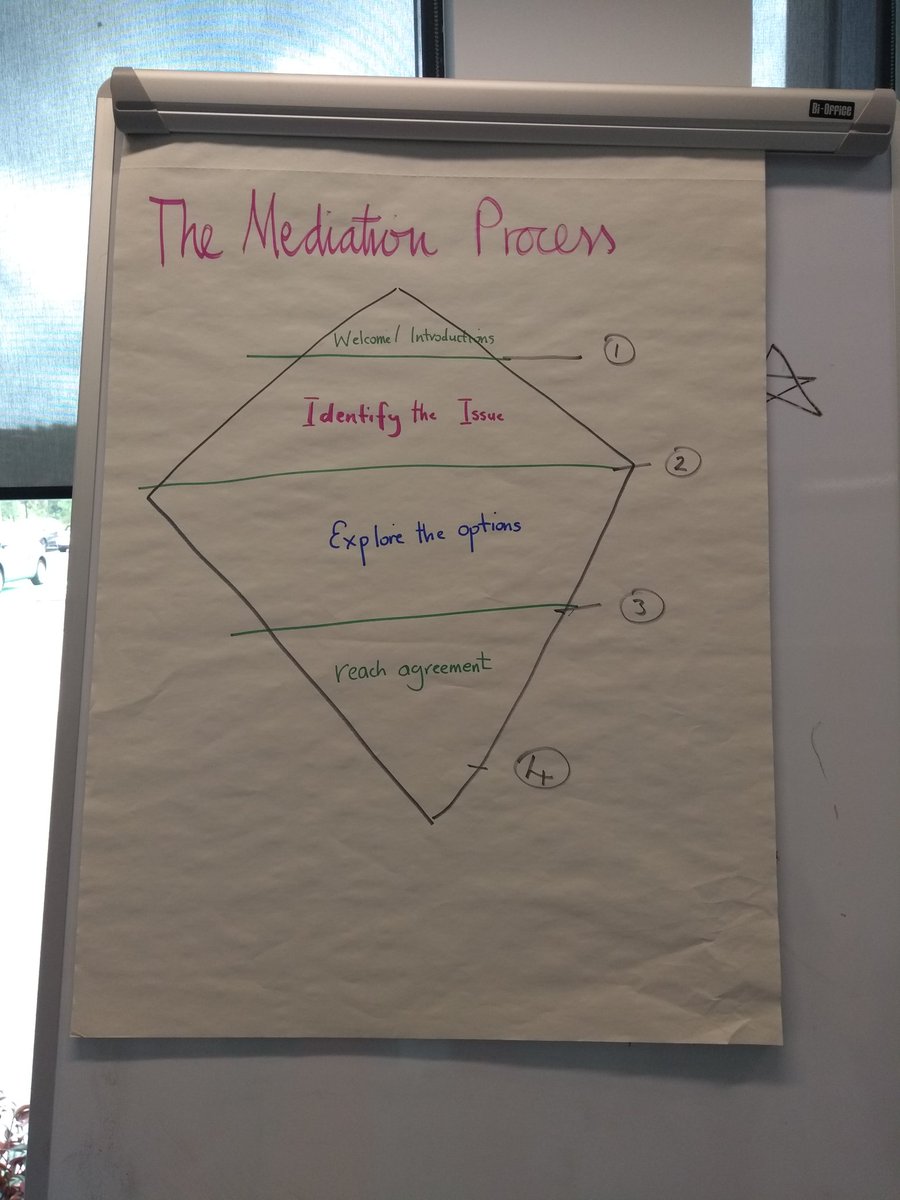 Bi-Office
The Mediation Process
Welcome/ Introductions
1
Identify the Issue
2
Explore the options
3
reach agreement
4